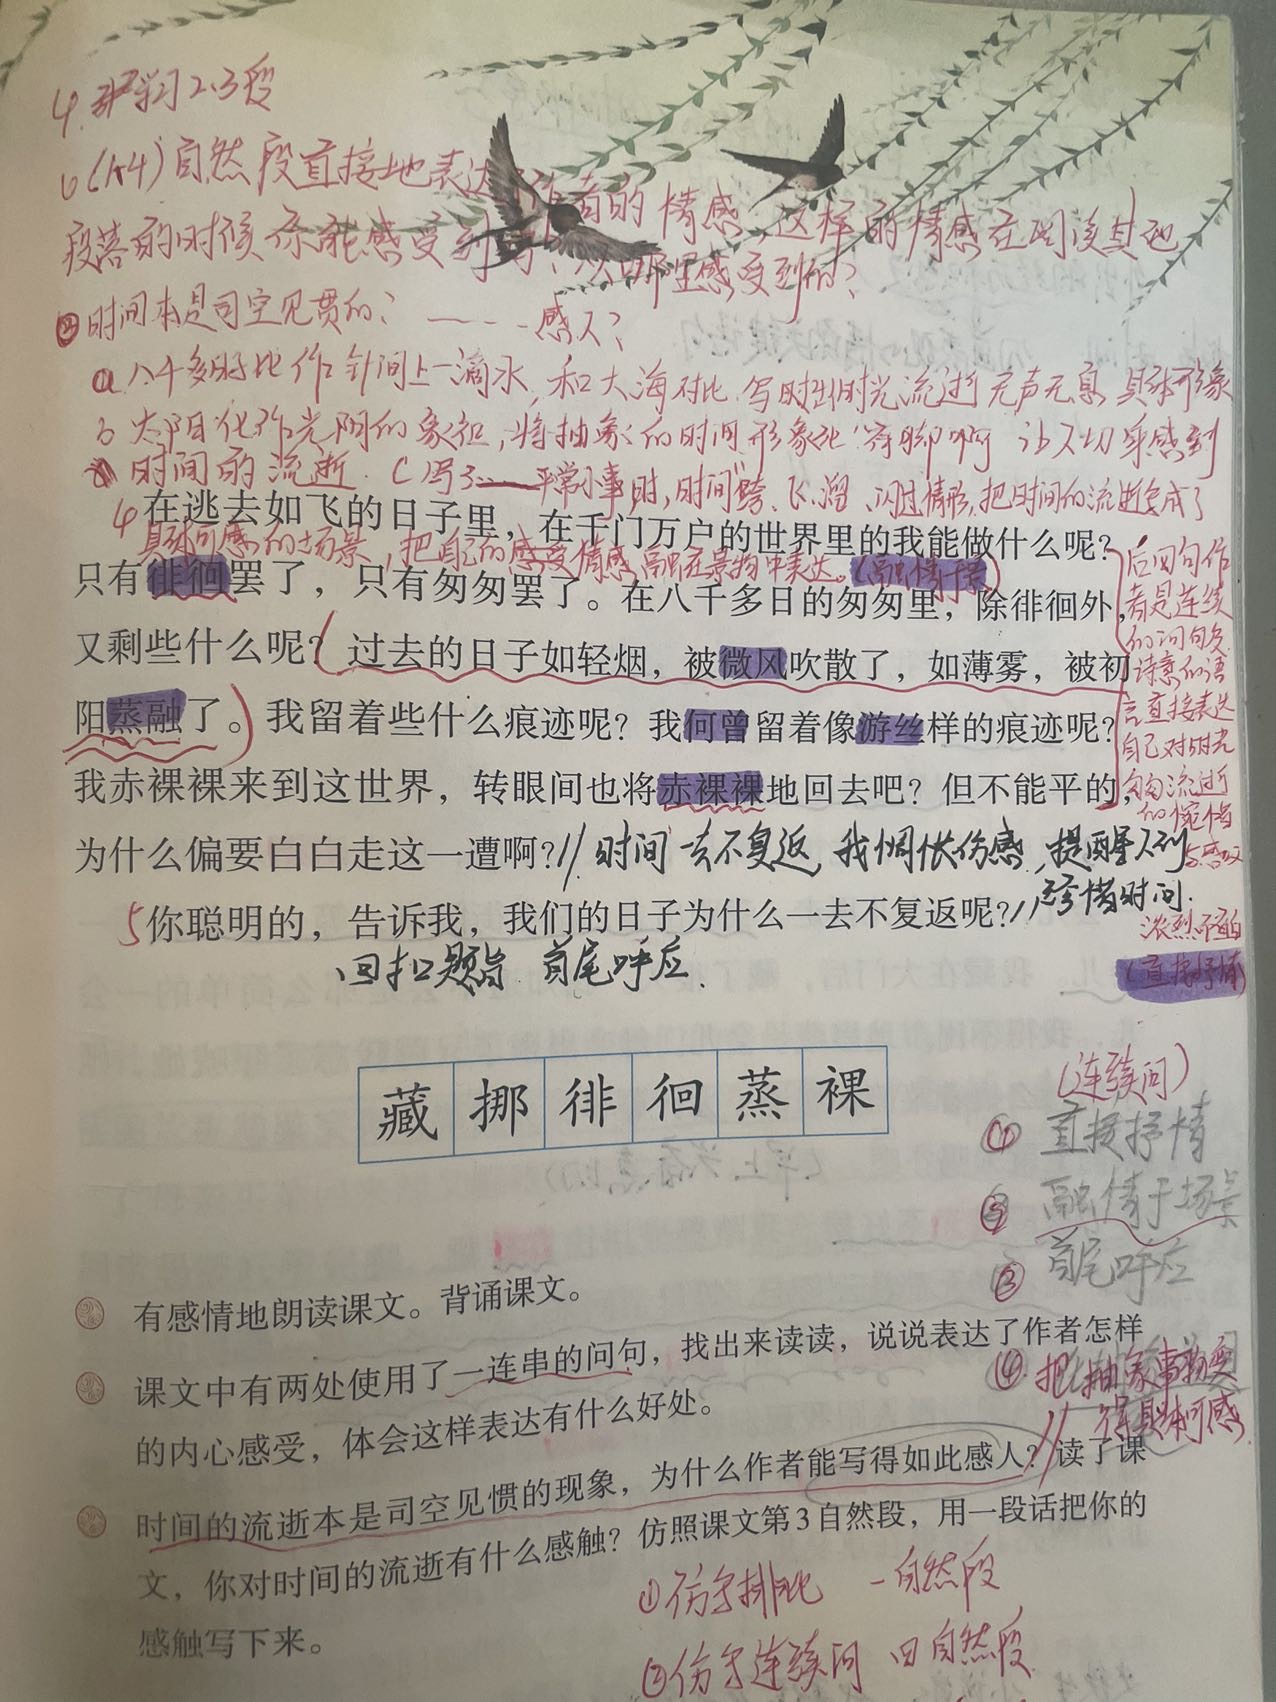 4. 学习2.3段
(1.4)自然段直接地表达了作者的情感,这样的情感在阅读其他
段落的时候你能感受到吗?从哪里感受到的?
②时间本是司空见惯的? ----感人?
a 八千多日比作针尖上一滴水,和大海对比,写时出时光流逝无声无息 具体形象
b 太阳化作光阴的象征,将抽象的时间形象化"有脚啊 让人切身感到
时间的流逝. C 写了——平常小事时,时间"跨、飞、溜、闪过情形,把时间的流逝变成了
具体可感的场景,把自己的感受情感融在景物中表达。(融情于景)
4 在逃去如飞的日子里,在千门万户的世界里的我能做什么呢?
只有徘徊罢了,只有匆匆罢了。在八千多日的匆匆里,除徘徊外,
又剩些什么呢?过去的日子如轻烟,被微风吹散了,如薄雾,被初
阳蒸融了。我留着些什么痕迹呢?我何曾留着像游丝样的痕迹呢?
我赤裸裸来到这世界,转眼间也将赤裸裸地回去吧?但不能平的,
为什么偏要白白走这一遭啊?// 时间一去不复返,我惆怅伤感,提醒人们
珍惜时间.
5 你聪明的,告诉我,我们的日子为什么一去不复返呢?//
回扣题旨 首尾呼应.
后四句作
者是连续
的问句
诗意的语
言直接表达
自己对时光
匆匆流逝
的惋惜
浓烈
(直接抒情)
藏挪徘徊蒸裸
(连续问)
① 直接抒情
② 融情于场景
③ 首尾呼应
④ 把抽象事物变
得具体可感
有感情地朗读课文。背诵课文。
课文中有两处使用了一连串的问句,找出来读读,说说表达了作者怎样
的内心感受,体会这样表达有什么好处。
时间的流逝本是司空见惯的现象,为什么作者能写得如此感人?//读了课
文,你对时间的流逝有什么感触?仿照课文第3自然段,用一段话把你的
感触写下来。
①仿写排比 一自然段
②仿写连续问 四自然段